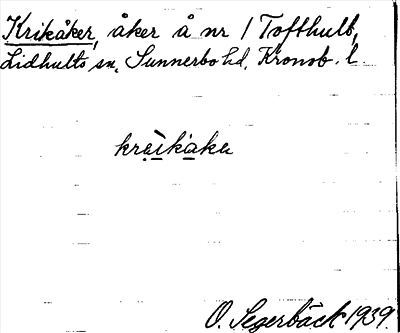 Krikåker, åker å nr 1 Tofthult,
Lidhults sn, Sunnerbo hd, Kronob. l.
kräikåka
O. Segerbäck 1939.